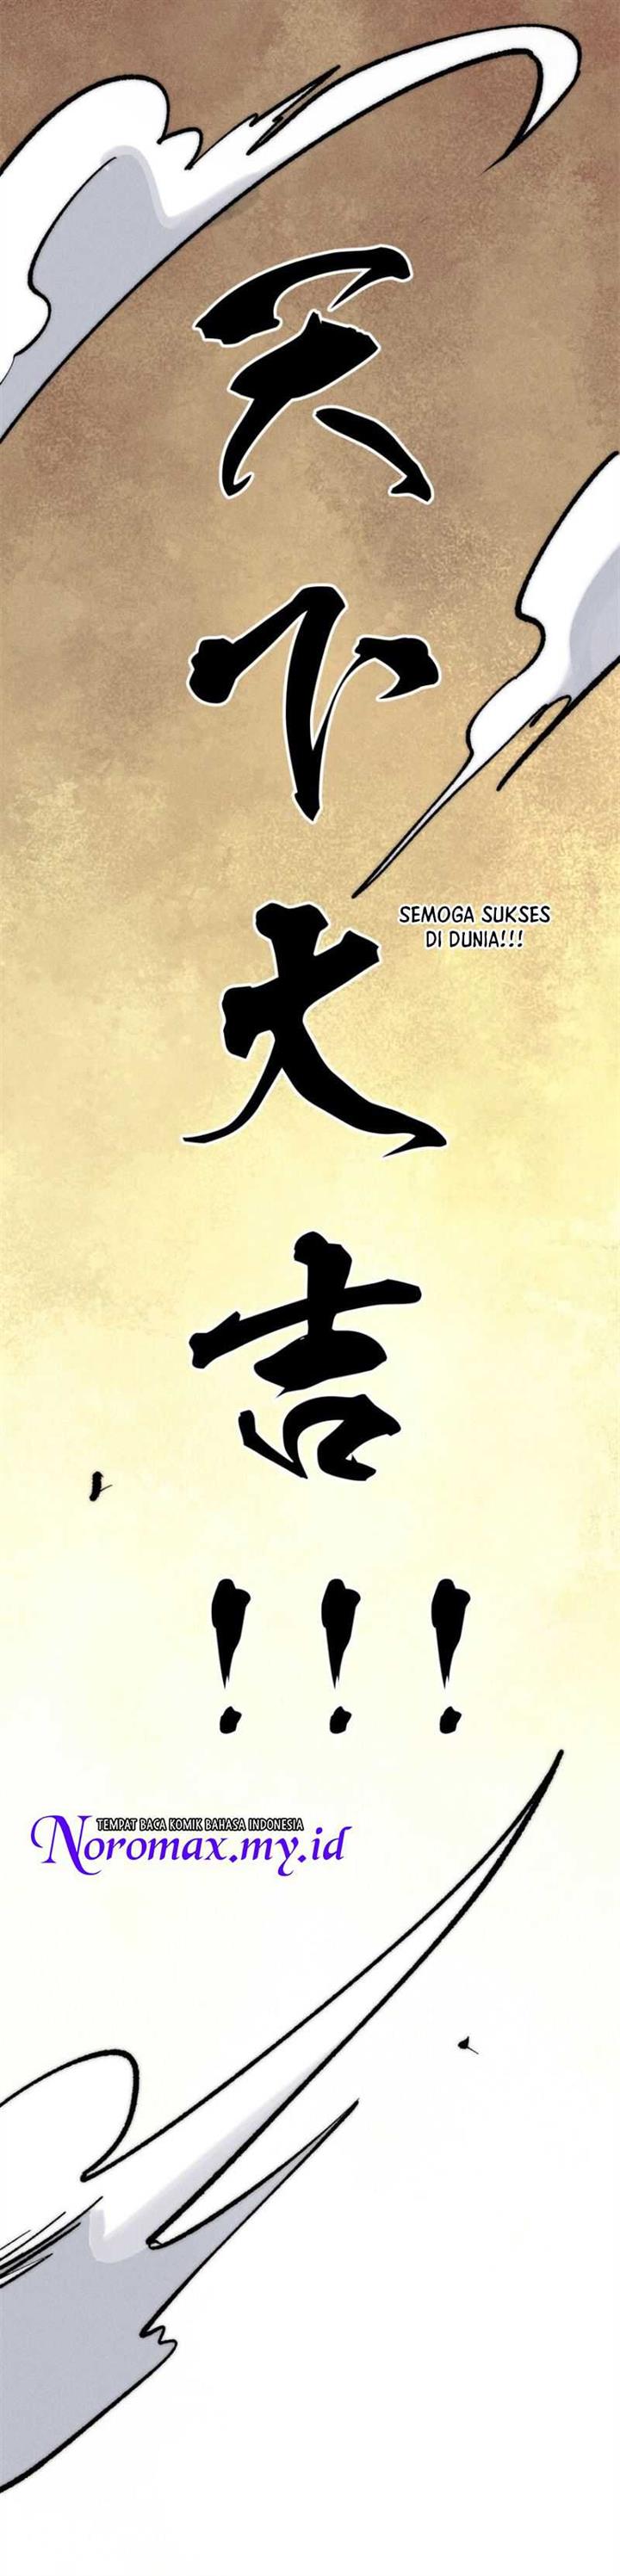 天
下
大
吉
!!!
SEMOGA SUKSES
DI DUNIA!!!
TEMPAT BACA KOMIK BAHASA INDONESIA
Noromax.my.id